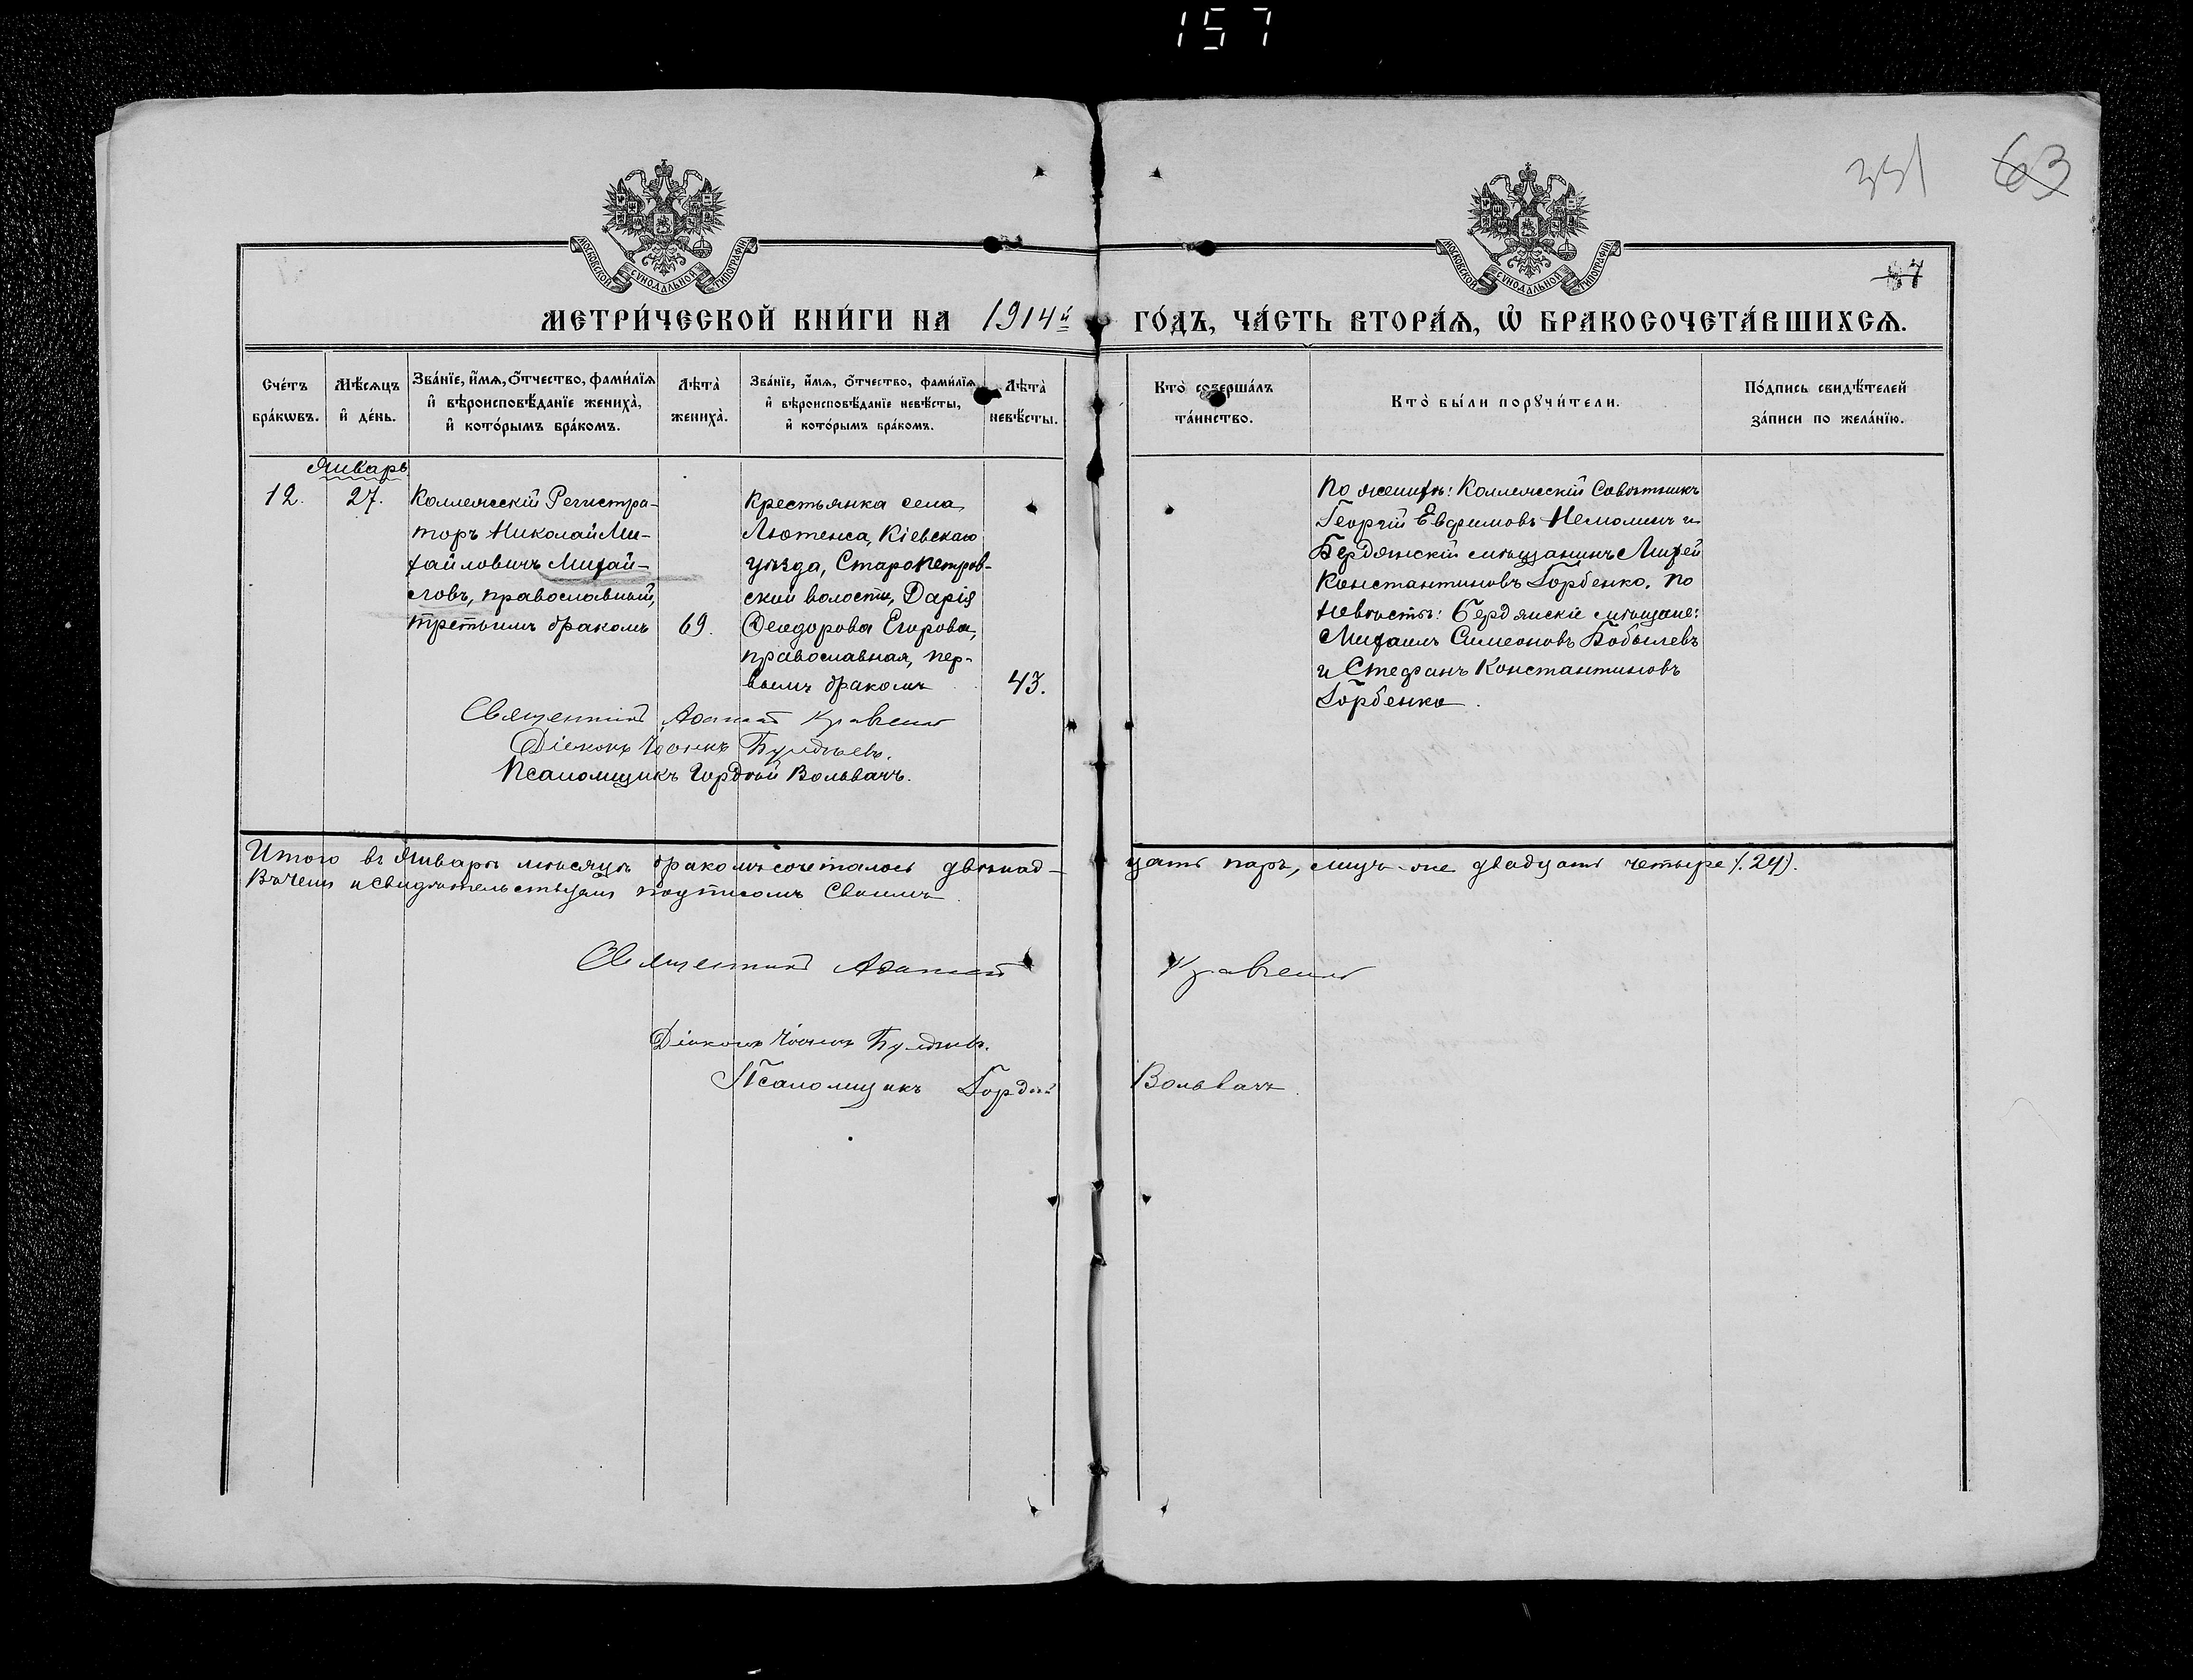 157
351 63
МОСКОВСКОЙ СѴНОДАЛЬНОЙ ТИПОГРАФІИ
МОСКОВСКОЙ СѴНОДАЛЬНОЙ ТИПОГРАФІИ
МЕТРИ́ЧЕСКОЙ КНИ́ГИ НА 1914й ГО́ДЪ, ЧА́СТЬ ВТОРА́Ѧ, Ѡ БРАКОСОЧЕТА́ВШИХСѦ.
Сче́тъ бра́кѡвъ.
Мѣ́сяцъ и҆ де́нь.
Зва́нїе, и҆́мѧ, ѻ҆́тчество, фами́лїѧ и҆ вѣроисповѣ́данїе жениха̀, и҆ кото́рымъ бра́комъ.
Лѣта̀ жениха̀.
Зва́нїе, и҆́мѧ, ѻ҆́тчество, фами́лїѧ и҆ вѣроисповѣ́данїе невѣ́сты, и҆ кото́рымъ бра́комъ.
Лѣта̀ невѣ́сты.
Кто̀ соверша́лъ та́инство.
Кто̀ бы́ли порꙋчи́тели.
По́дпись свидѣ́телей за́писи по жела́нїю.
Январь
12.
27.
Коллежскій Регистра-
торъ Николай Ми-
хайловичъ Михай-
ловъ, православный,
третьимъ бракомъ
69.
Крестьянка села
Лютежа, Кіевскаго
уѣзда, Старопетров-
ской волости, Дарія
Ѳеодорова Егорова,
православная, пер-
вымъ бракомъ
43.
По женихѣ: Коллежскій Совѣтникъ
Георгій Евфимовъ и
Бердянскій мѣщанинъ Михей
Константиновъ Горбенко. По
невѣстѣ: Бердянскіе мѣщане:
Михаилъ Симеоновъ Бобылевъ
и Стефанъ Константиновъ
Горбенко.
Священникъ Кравченко
Діаконъ Іоаннъ
Псаломщикъ Гордѣй Вольвачъ.
Итого въ Январѣ мѣсяцѣ бракомъ сочеталось двѣнад-
цать паръ, лицъ-же двадцать четыре /.24/.
Въ чемъ и свидѣтельствуемъ подписомъ своимъ
Священникъ Кравченко
Діаконъ Іоаннъ
Псаломщикъ Гордѣй Вольвачъ